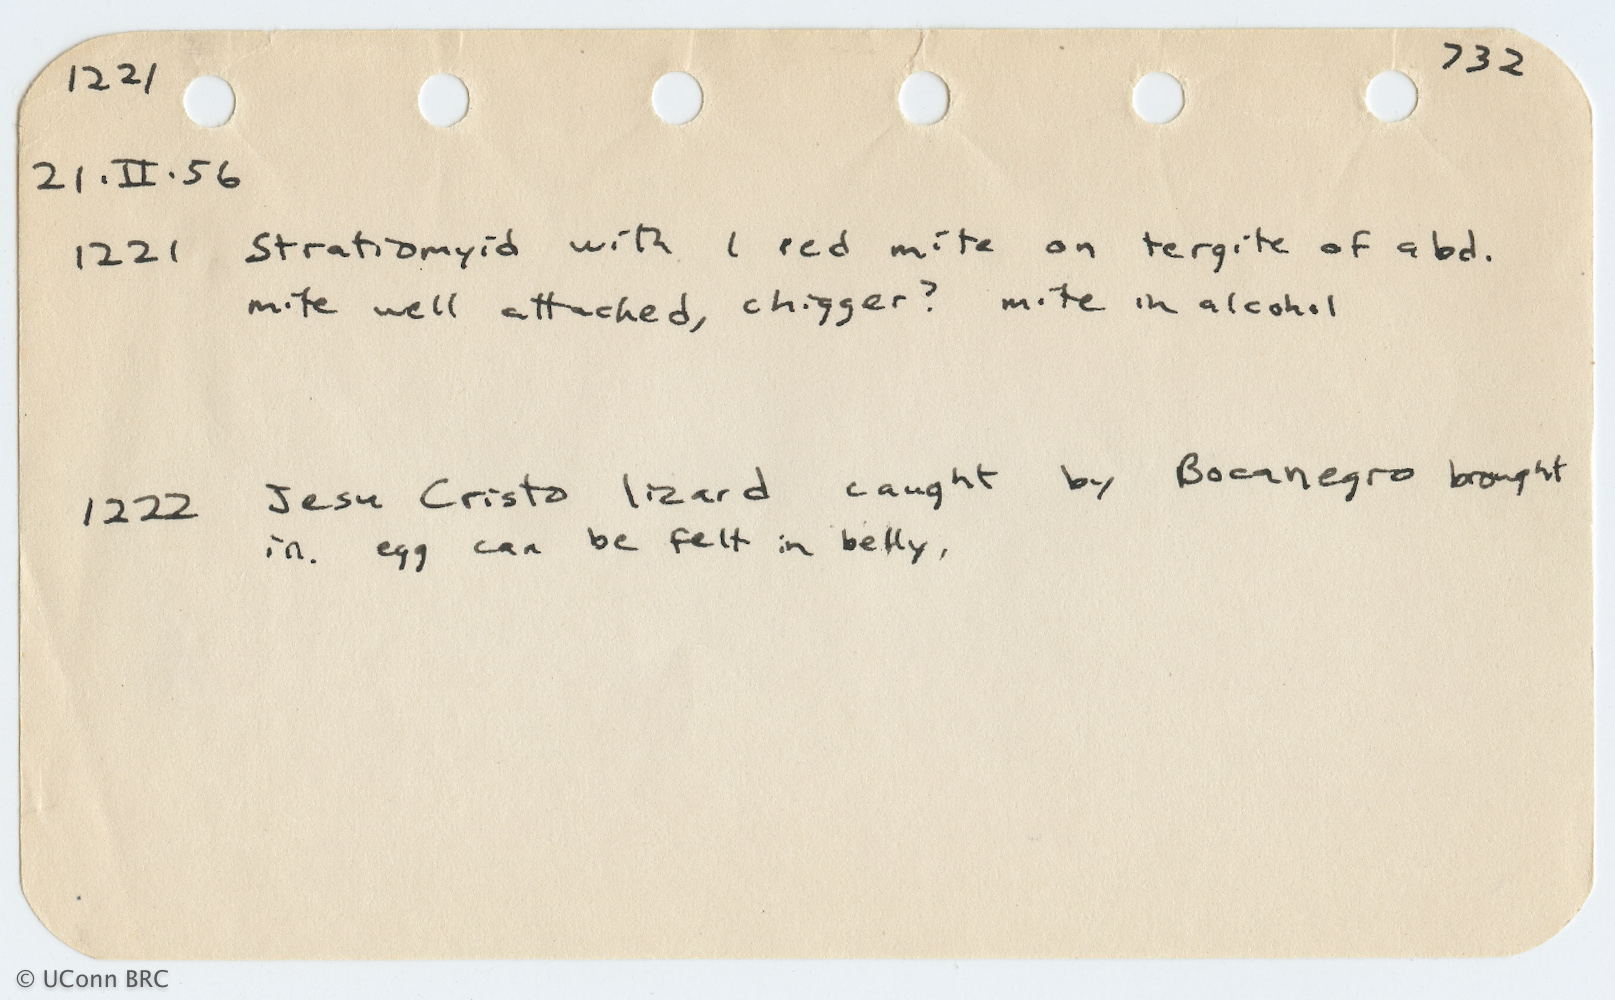 1221
732
21.II.56
1221 Stratiomyid with 1 red mite on tergite of abd.
mite well attached, chigger? mite in alcohol
1222 Jesu Cristo lizard caught by Bocanegro brought
in. egg can be felt in belly,
© UConn BRC